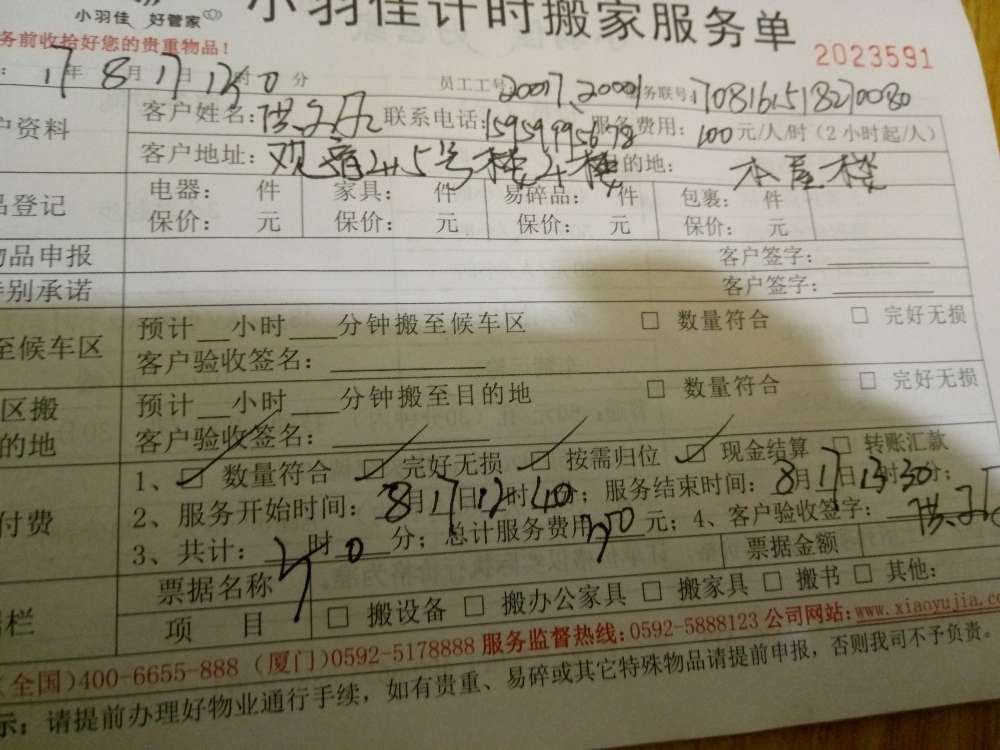 小羽佳 好管家
小羽佳计时搬家服务单
务前收拾好您的贵重物品!
2023591
: 17年 8月17日 12时 0分 员工工号 20017、20001 务联号: 708161518270080
户资料 客户姓名: 联系电话: 15959995678 服务费用: 100元/人/时(2小时起/人)
客户地址: 观音 5号楼 楼 的地: 本屋楼
品登记 电器: 件 家具: 件 易碎品: 件 包裹: 件
保价: 元 保价: 元 保价: 元 保价: 元
物品申报 客户签字:
特别承诺 客户签字:
至候车区 预计__小时___分钟搬至候车区 □ 数量符合 □ 完好无损
客户验收签名:
区搬 预计__小时___分钟搬至目的地 □ 数量符合 □ 完好无损
的地 客户验收签名:
1、☑ 数量符合 ☑ 完好无损 ☑ 按需归位 ☑ 现金结算 □ 转账汇款
付费 2、服务开始时间: 8月17日12时40分; 服务结束时间: 8月17日13时30分;
3、共计: 时 0 分; 总计服务费用 元; 4、客户验收签字:
票据名称 票据金额
栏 项 目 □ 搬设备 □ 搬办公家具 □ 搬家具 □ 搬书 □ 其他:
(全国)400-6655-888 (厦门)0592-5178888 服务监督热线:0592-5888123 公司网站:www.xiaoyujia.co
示: 请提前办理好物业通行手续, 如有贵重、易碎或其它特殊物品请提前申报, 否则我司不予负责。